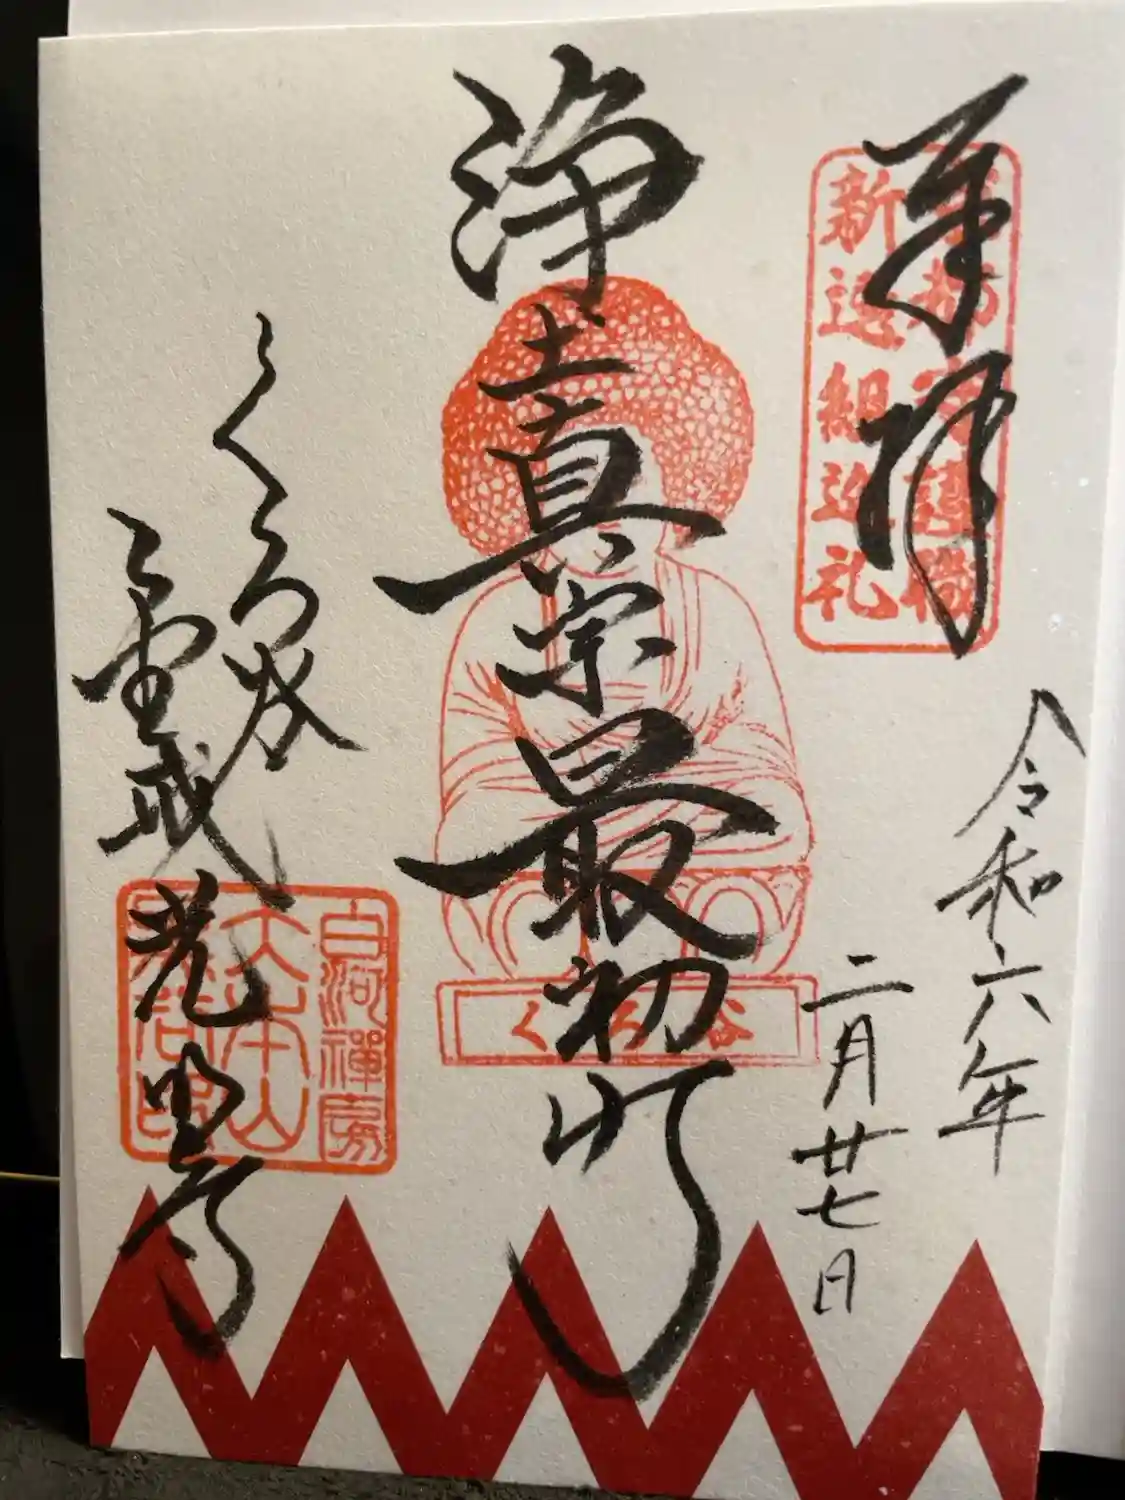 奉拝
新選組巡礼
令和六年
二月廿七日
浄土真宗最初門
くろ谷
くろ谷
金戒光明寺
白河禅房
大本山